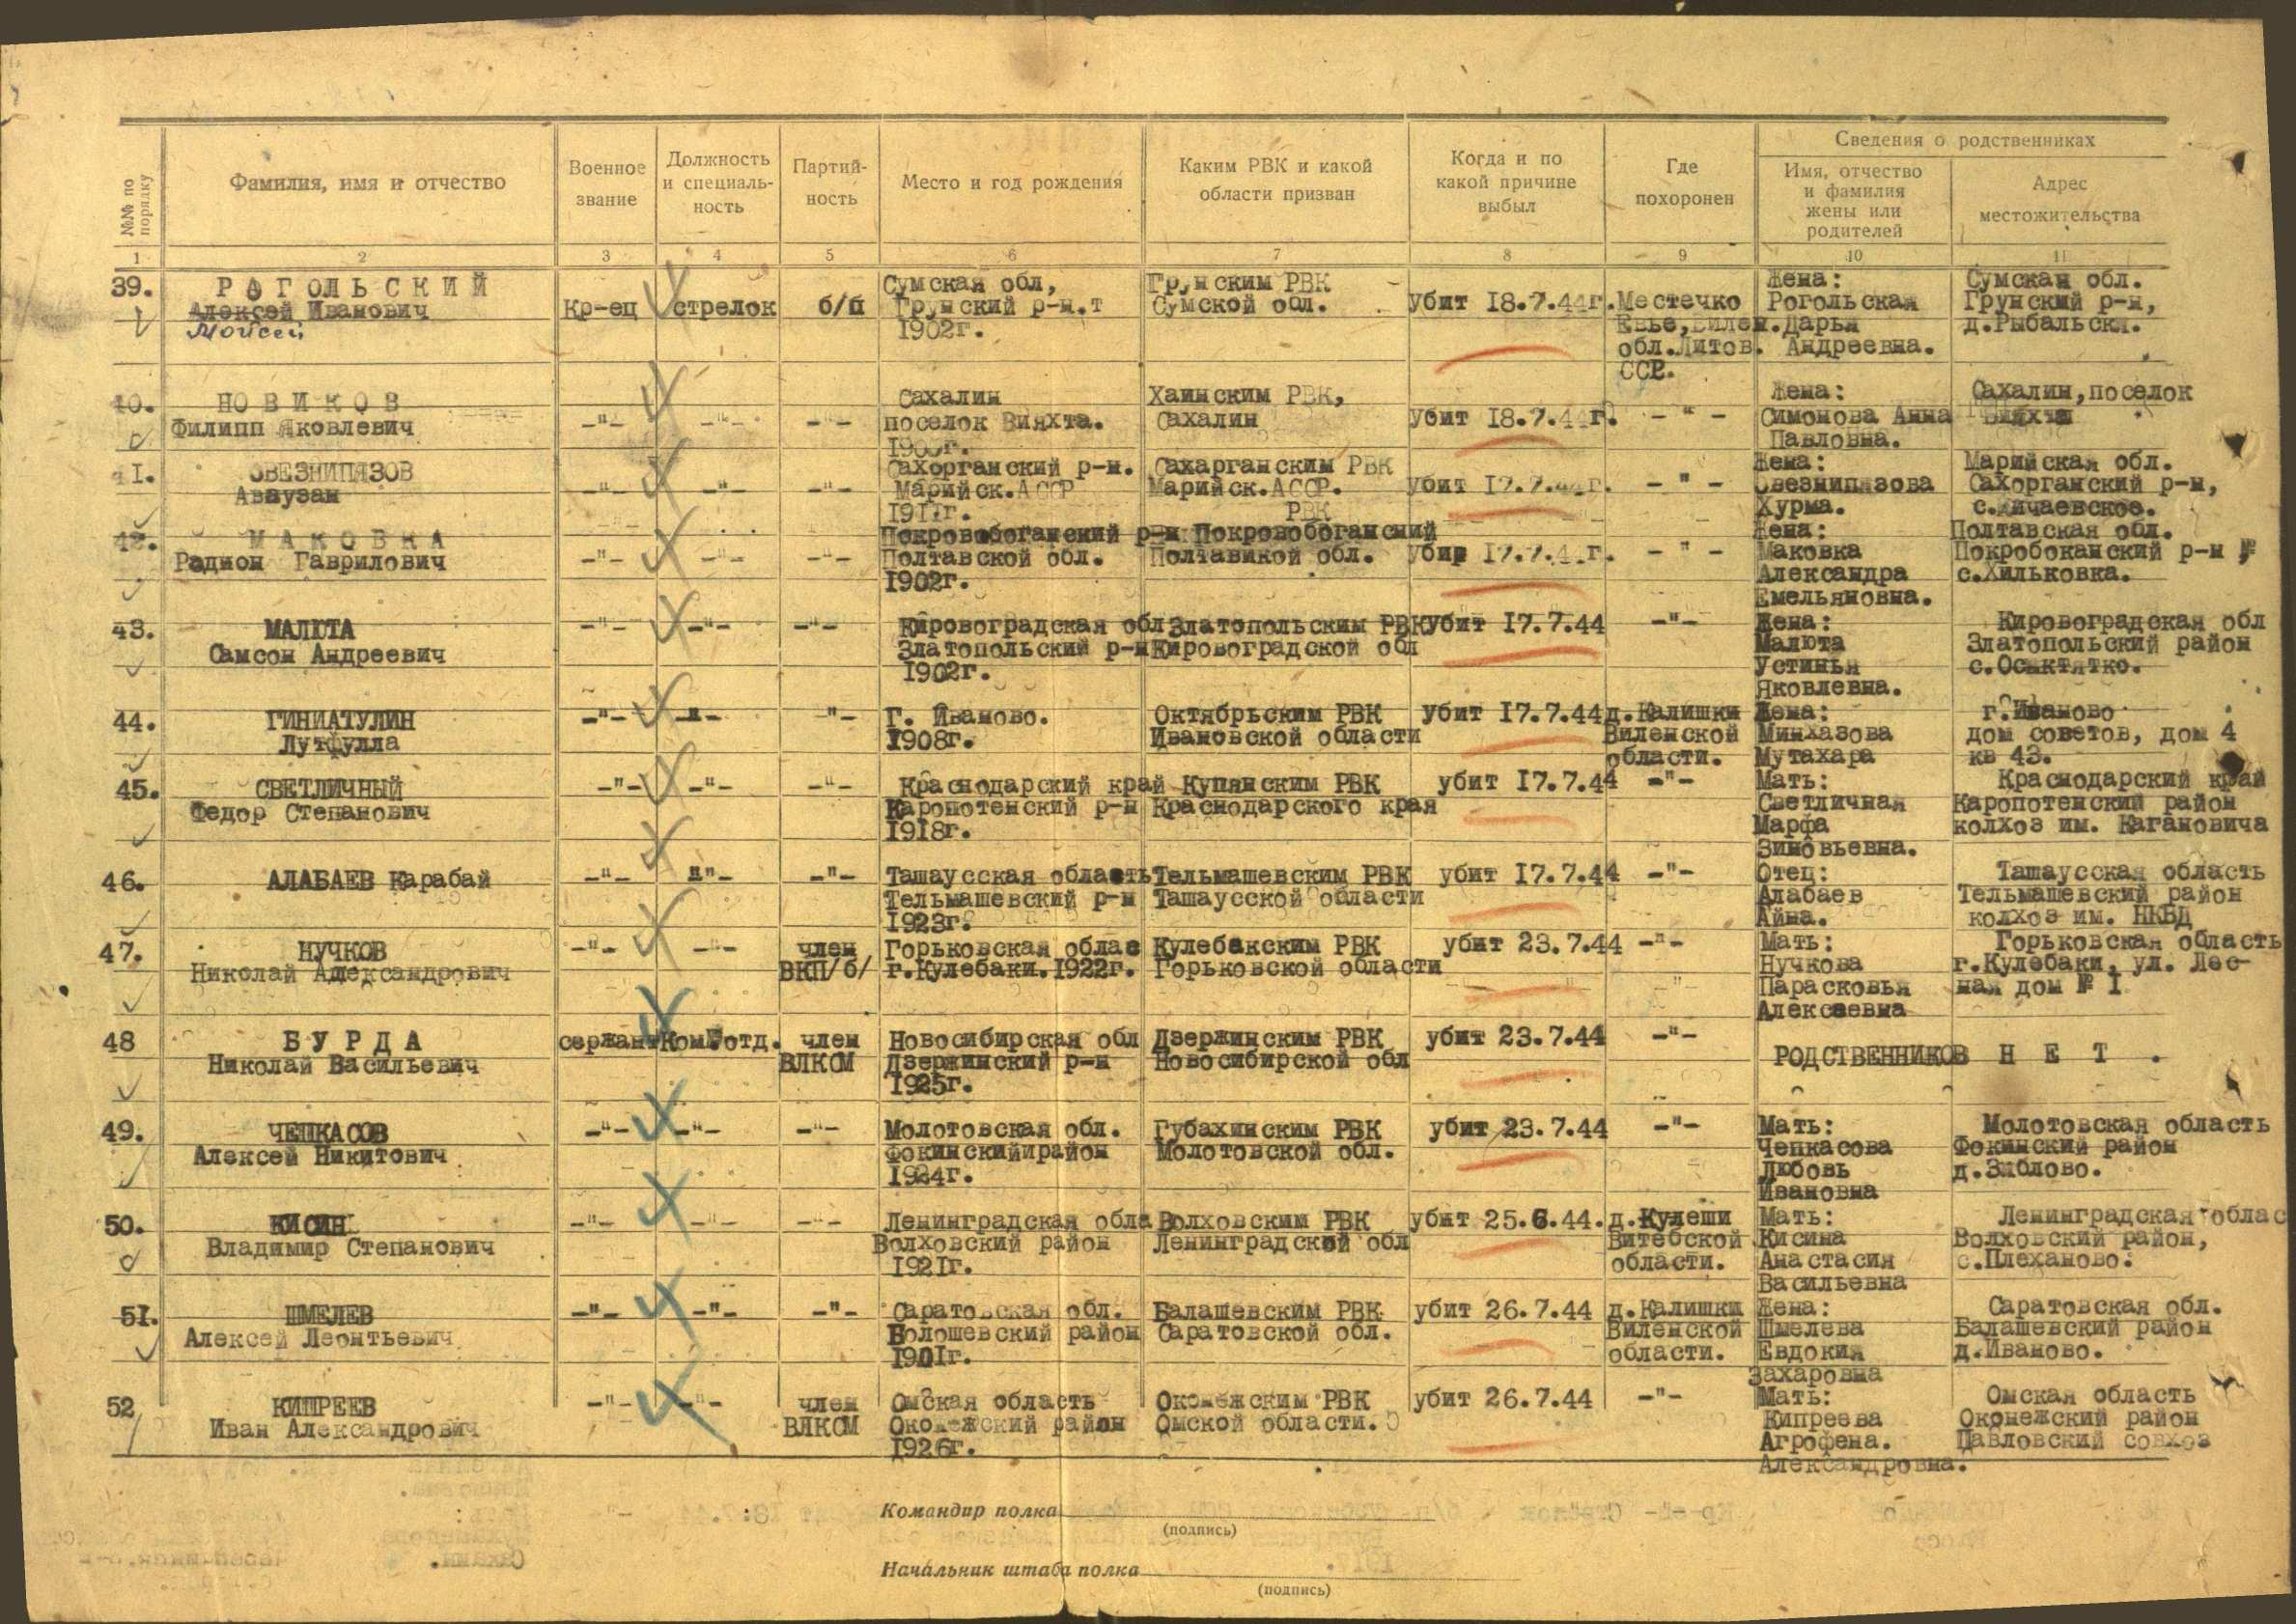 №№ по порядку
Фамилия, имя и отчество
Военное звание
Должность и специальность
Партийность
Место и год рождения
Каким РВК и какой области призван
Когда и по какой причине выбыл
Где похоронен
Сведения о родственниках
Имя, отчество и фамилия жены или родителей
Адрес местожительства
1 2 3 4 5 6 7 8 9 10 11
39. РОГОЛЬСКИЙ Сумская обл, Грунским РВК Жена: Сумская обл.
Алексей Иванович Кр-ец стрелок б/п Грунский р-н.т Сумской обл. убит 18.7.44г. Местечко Рогольская Грунский р-н,
Мойсей 1902г. Евье, Вилен. Дарья д.Рыбальск.
обл.Литов. Андреевна.
ССР.
40. НОВИКОВ Сахалин Хаинским РВК, Жена: Сахалин, поселок
Филипп Яковлевич -"- -"- -"- поселок Вияхта. Сахалин убит 18.7.44г. - " - Симонова Анна Вияхта
Павловна.
41. ОВЕЗНИПЯЗОВ Сахорганский р-н. Сахарганским РВК Жена: Марийская обл.
Аваузан -"- -"- -"- Марийск.АССР Марийск.АССР. убит 17.7.44г. - " - Овезнипязова Сахорганский р-н,
1911г. РВК Хурма.
42. МАКОВКА Покровобоганский р-н Покровобоганский Жена: Полтавская обл.
Родион Гаврилович -"- -"- -"- Полтавской обл. Полтавикой обл. убир 17.7.44г. - " - Маковка Покробоканский р-н,
1902г. Александра с.Хильковка.
Емельяновна.
43. МАЛЮТА -"- -"- -"- Кировоградская обл Златопольским РВК убит 17.7.44 -"- Жена: Кировоградская обл
Самсон Андреевич Златопольский р-н Кировоградской обл Малюта Златопольский район
1902г. Устинья с.Осиктятко.
Яковлевна.
44. ГИНИАТУЛИН -"- -"- -"- Г. Иваново. Октябрьским РВК убит 17.7.44 д.Калишки Жена: г.Иваново
Лутфулла 1908г. Ивановской области Виленской Минхазова дом советов, дом 4
области. Мутахара кв 43.
45. СВЕТЛИЧНЫЙ -"- -"- -"- Краснодарский край Купянским РВК убит 17.7.44 -"- Мать: Краснодарский край
Федор Степанович Каропотенский р-н Краснодарского края Светличная Каропотенский район
1918г. Марфа колхоз им. Кагановича
Зиновьевна.
46. АЛАБАЕВ Карабай -"- -"- -"- Ташаусская область Тельмашевским РВК убит 17.7.44 -"- Отец: Ташаусская область
Тельмашевский р-н Ташаусской области Алабаев Тельмашевский район
1923г. Айна. колхоз им. НКВД
47. НУЧКОВ -"- -"- член Горьковская облас Кулебакским РВК убит 23.7.44 -"- Мать: Горьковская область
Николай Александрович ВКП/б/ г.Кулебаки.1922г. Горьковской области Нучкова г.Кулебаки, ул. Лес-
-"- Парасковья ная дом № 1
Алексеевна
48 БУРДА сержант Ком.отд. член Новосибирская обл Дзержинским РВК убит 23.7.44 -"-
Николай Васильевич ВЛКСМ Дзержинский р-н Новосибирской обл РОДСТВЕННИКОВ НЕТ.
1925г.
49. ЧЕПКАСОВ -"- -"- -"- Молотовская обл. Губахинским РВК убит 23.7.44 -"- Мать: Молотовская область
Алексей Никитович Фокинскийирайон Молотовской обл. Чепкасова Фокинский район
1924г. Любовь д.Зяблово.
Ивановна
50. КИСИН -"- -"- -"- Ленинградская обла Волховским РВК убит 25.6.44. д.Кулеши Мать: Ленинградская облас
Владимир Степанович Волховский район Ленинградской обл Витебской Кисина Волховский район,
1921г. области. Анастасия с.Плеханово.
Васильевна
51. ШМЕЛЕВ -"- -"- -"- Саратовская обл. Балашевским РВК убит 26.7.44 д.Калишки Жена: Саратовская обл.
Алексей Леонтьевич Болошевский район Саратовской обл. Виленской Шмелева Балашевский район
1901г. области. Евдокия д.Иваново.
Захаровна
52 КИПРЕЕВ -"- -"- член Омская область Оконежским РВК убит 26.7.44 -"- Мать: Омская область
Иван Александрович ВЛКСМ Оконежский район Омской области. Кипреева Оконежский район
1926г. Агрофена. Павловский совхоз
Александровна.
Командир полка
(подпись)
Начальник штаба полка
(подпись)